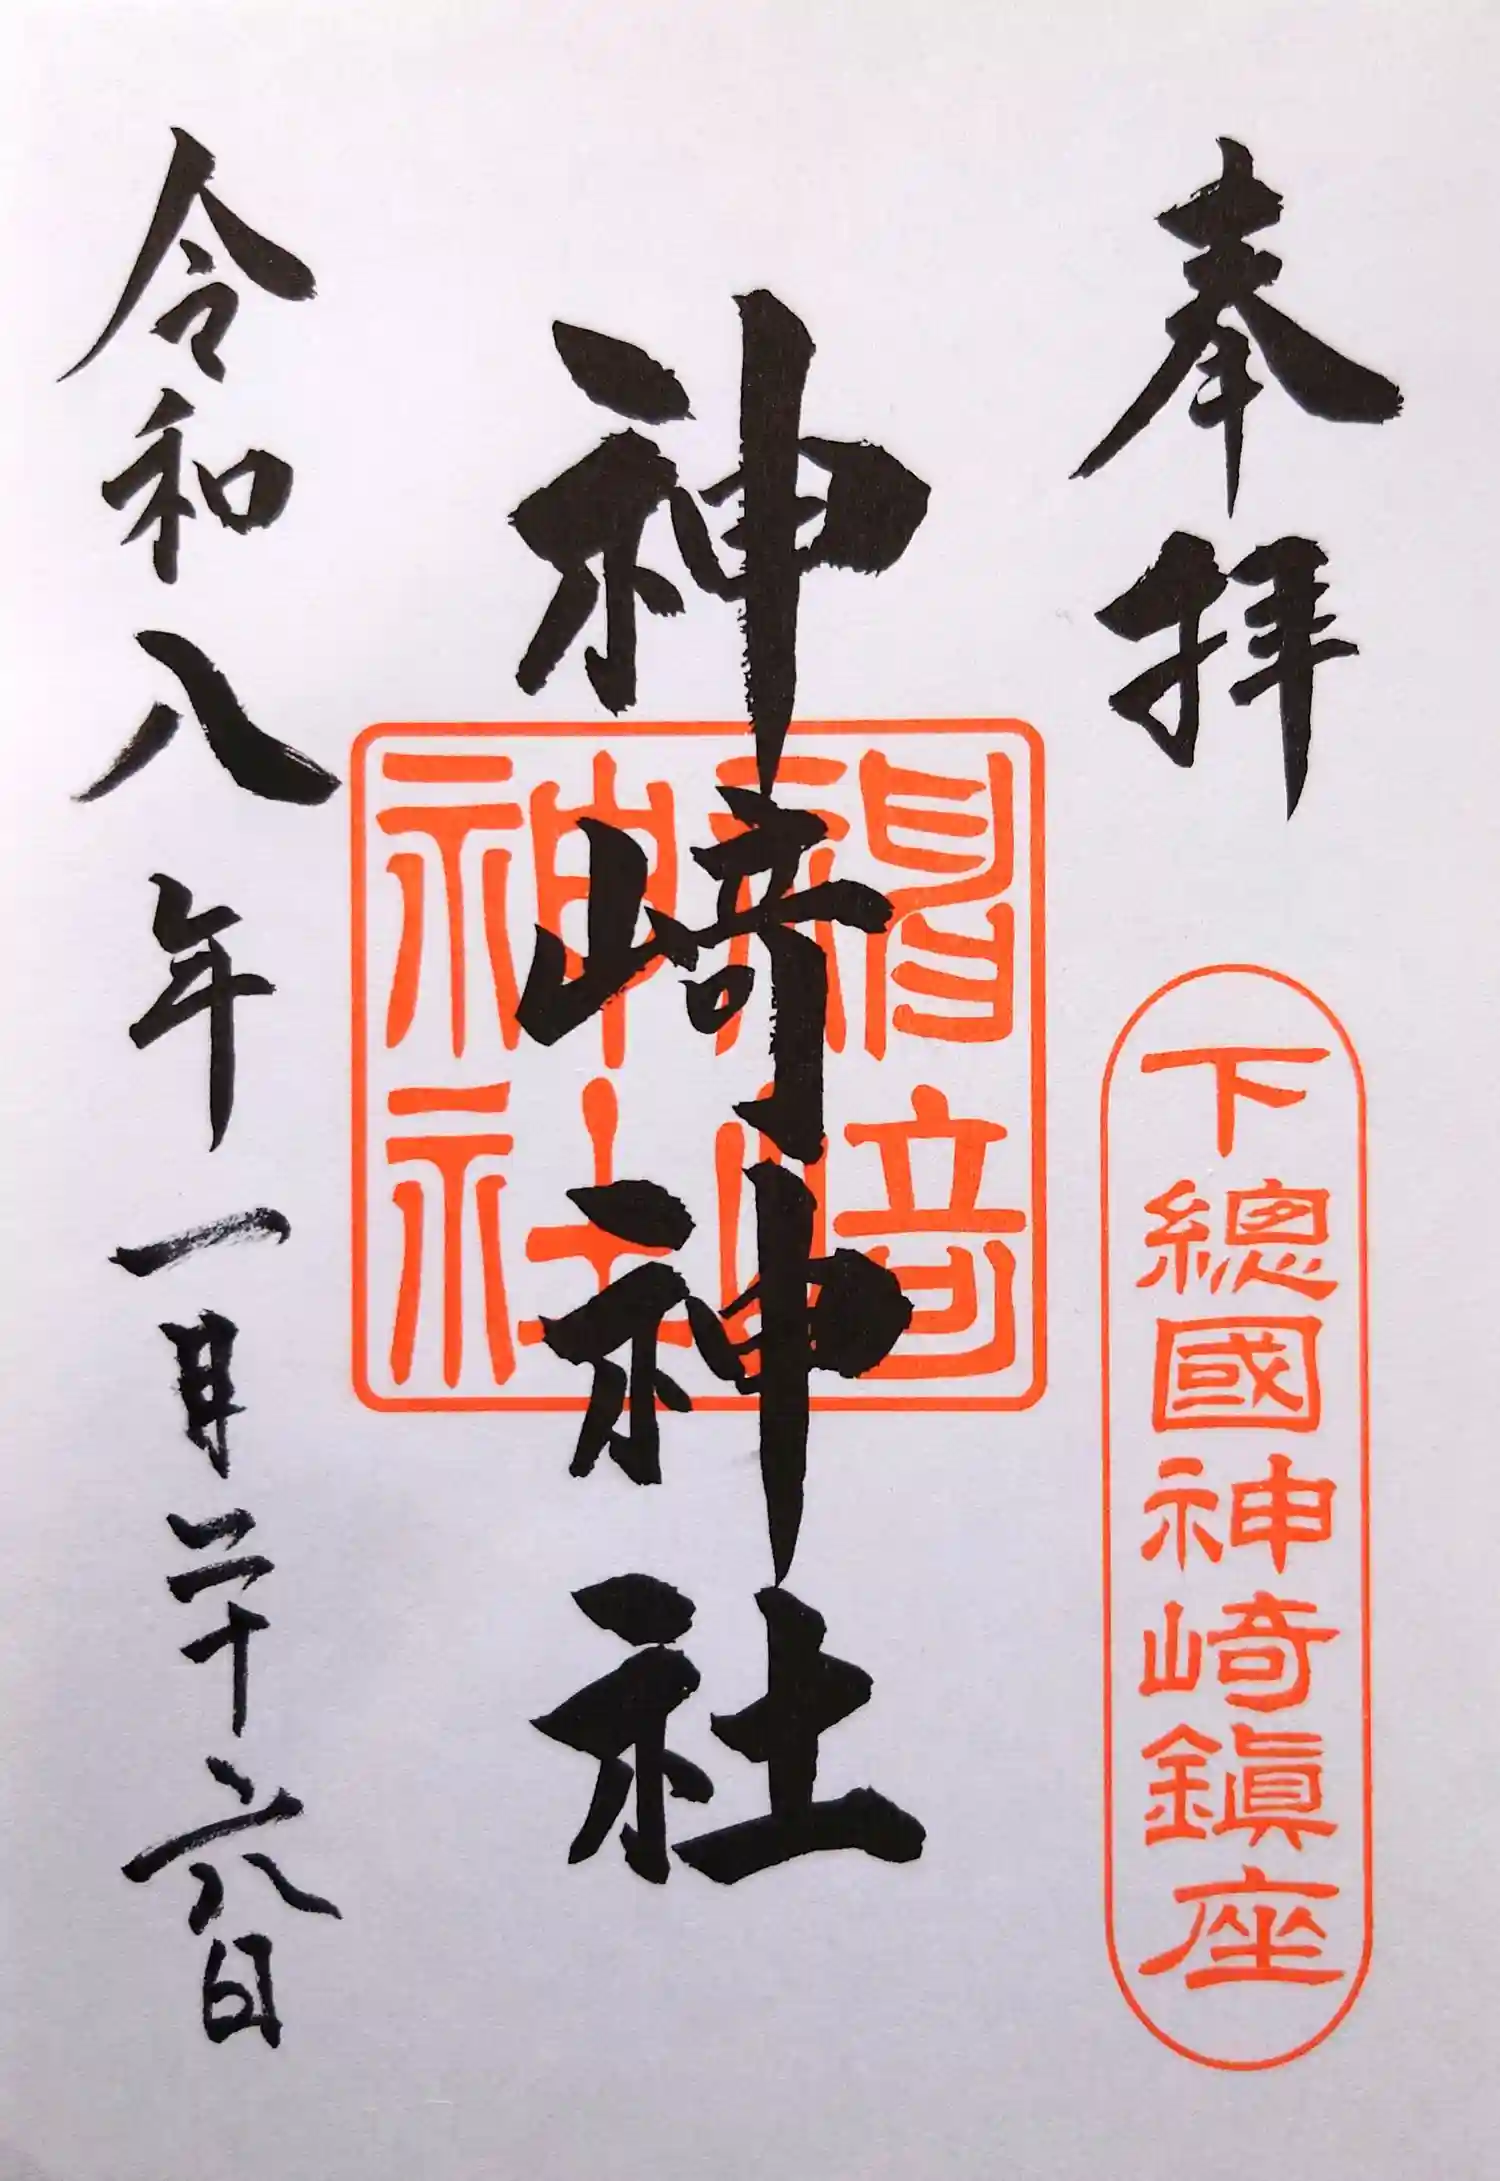 奉拝
下總國神崎鎭座
神崎神社
神崎神社
令和八年一月二十六日